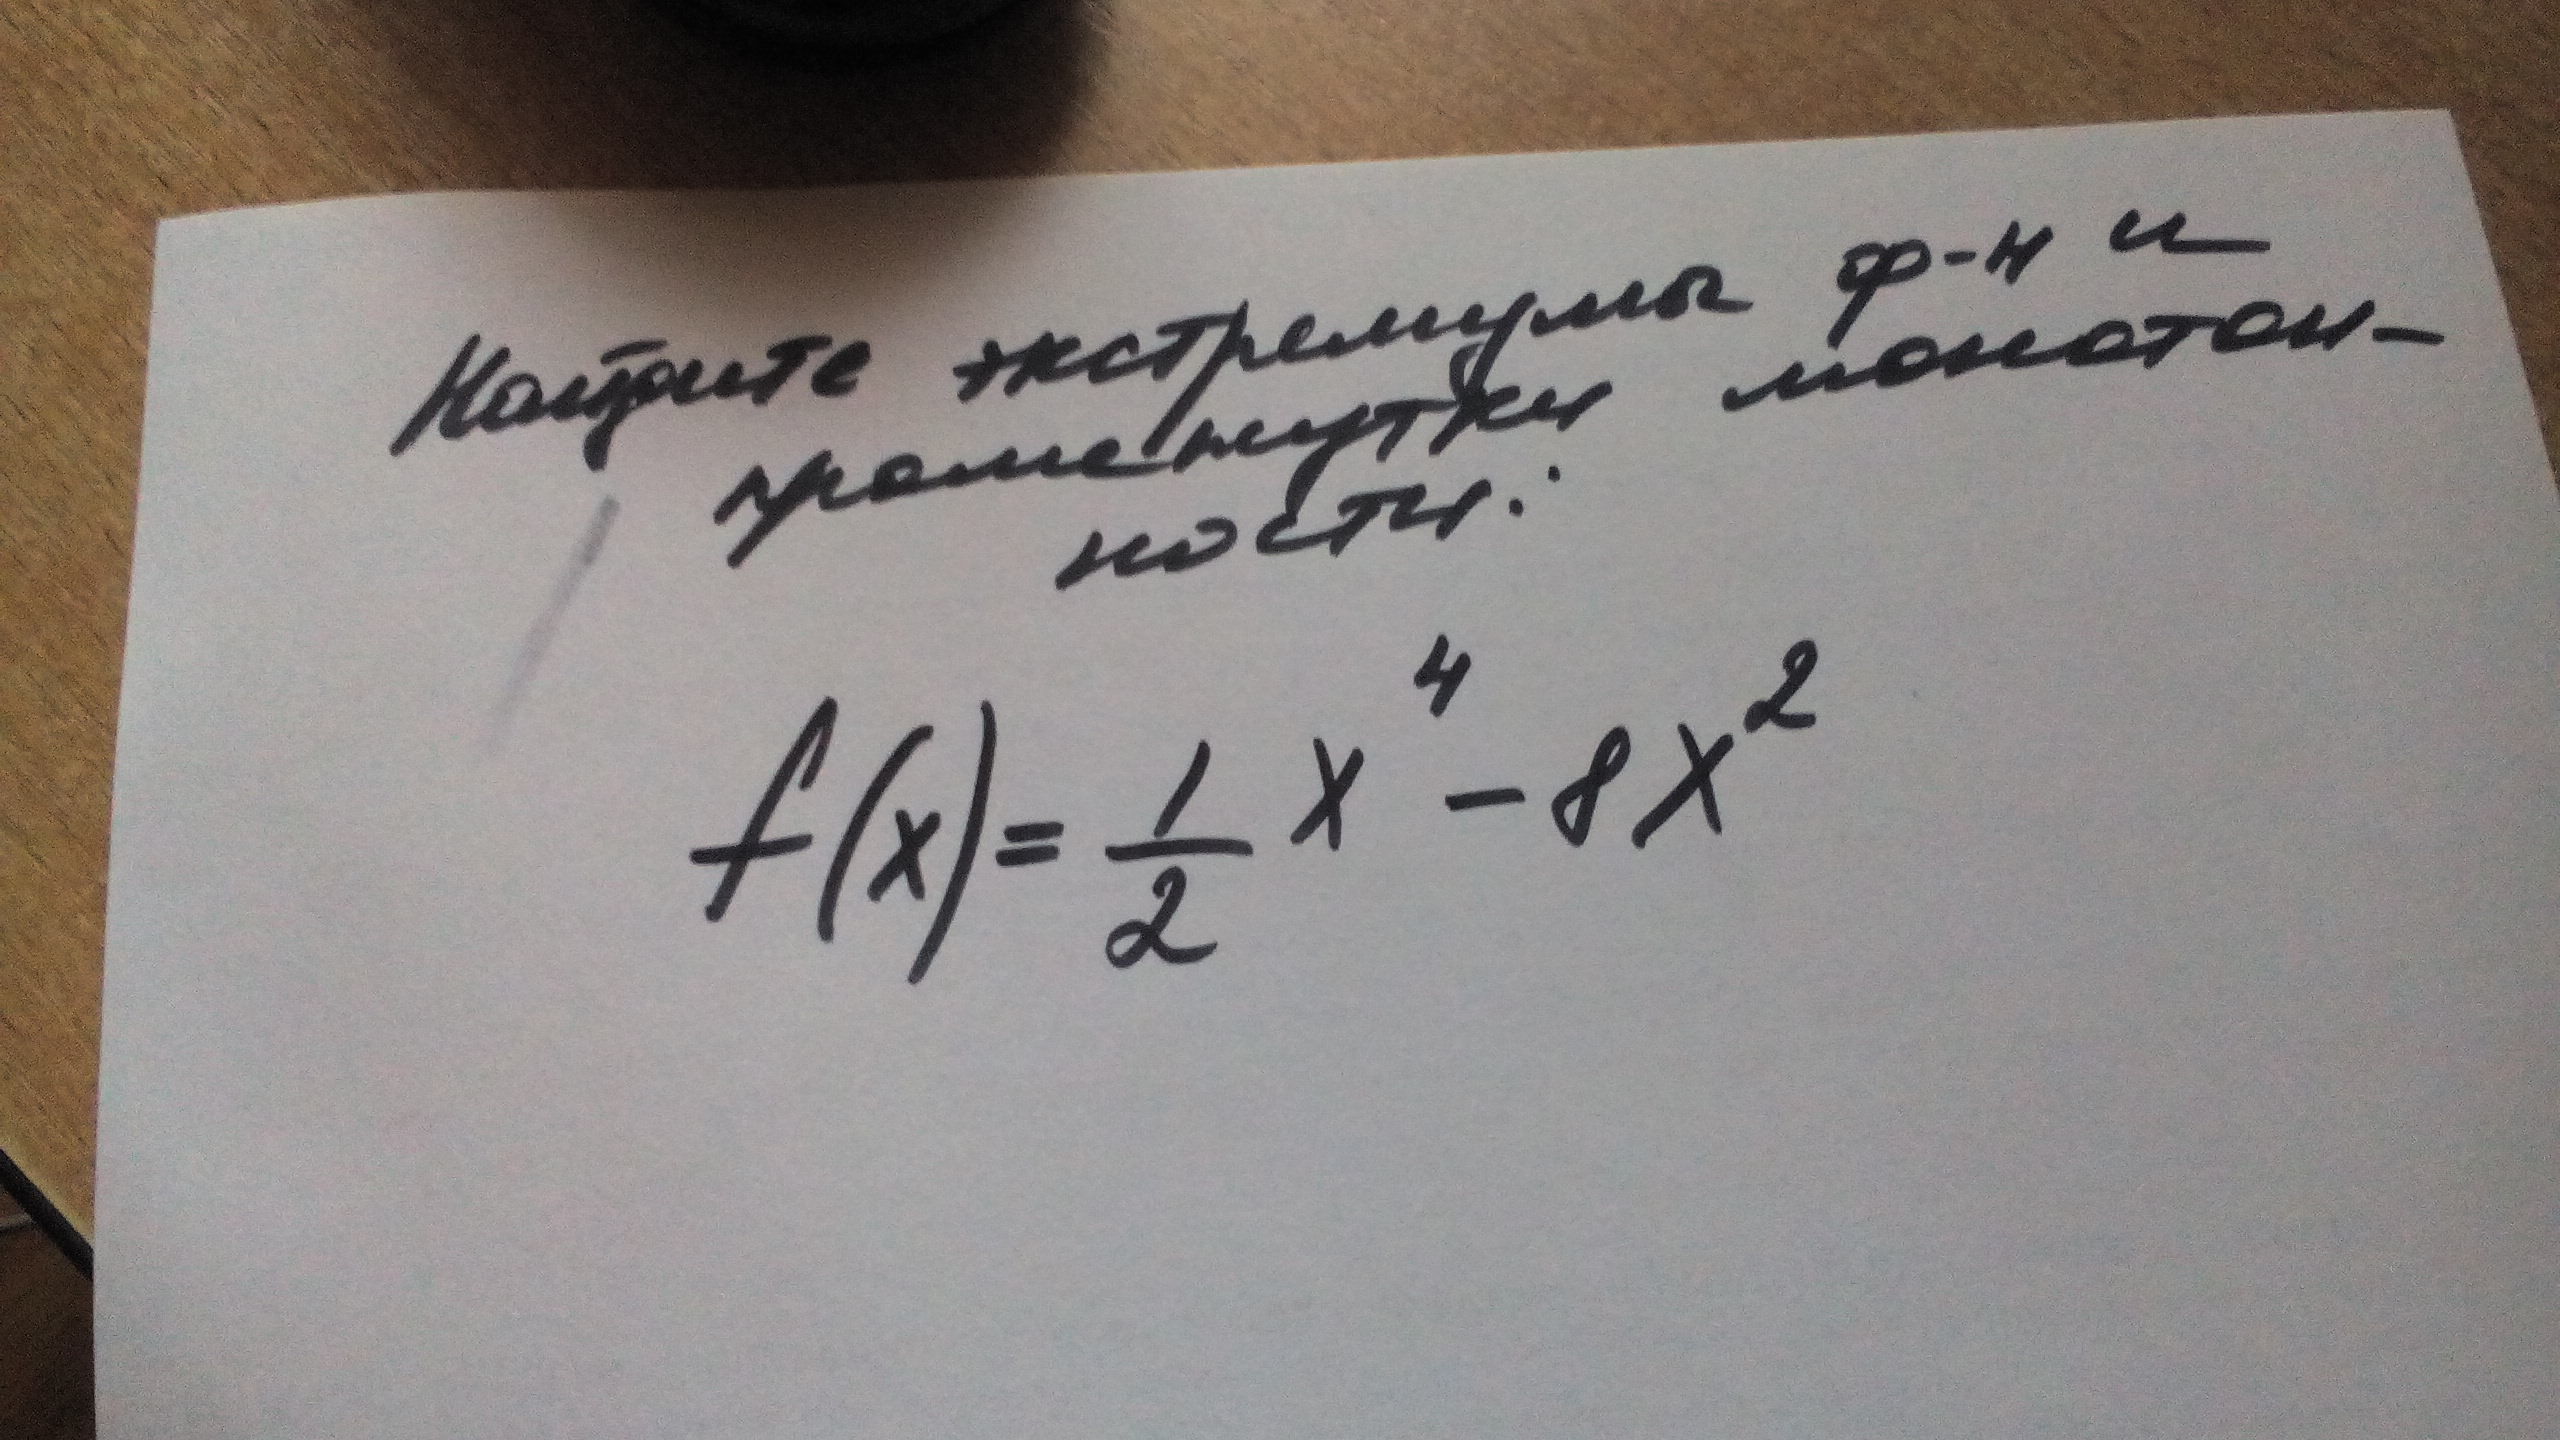 Найдите экстремумы ф-и и
промежутки монотон-
ности:
f(x) = \frac{1}{2} x^4 - 8x^2